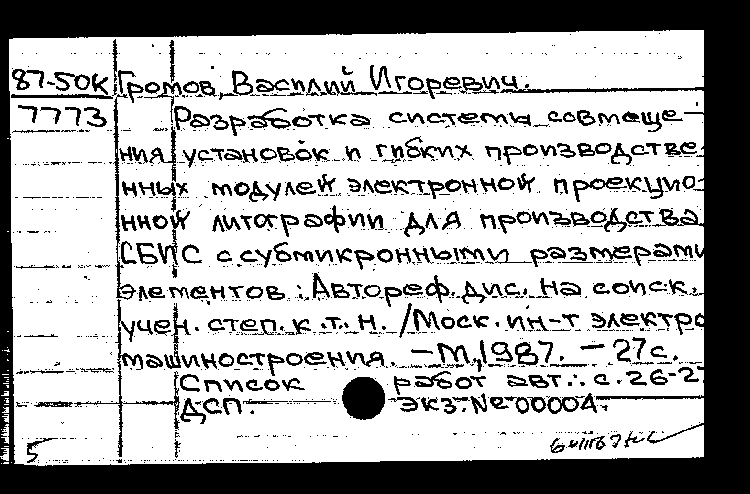 87-50К Громов, Василий Игоревич.
7773 Разработка системы совмеще-
ния установок и гибких производстве-
нных модулей электронной проекцио-
нной литографии для производства
СБИС с субмикронными размерами
элементов : Автореф. дис. на соиск.
учен. степ. к.т.н. /Моск. ин-т электро
машиностроения. – М., 1987. – 27с.
Список работ авт.: с.26-2
ДСП. Экз. № 00004.
5